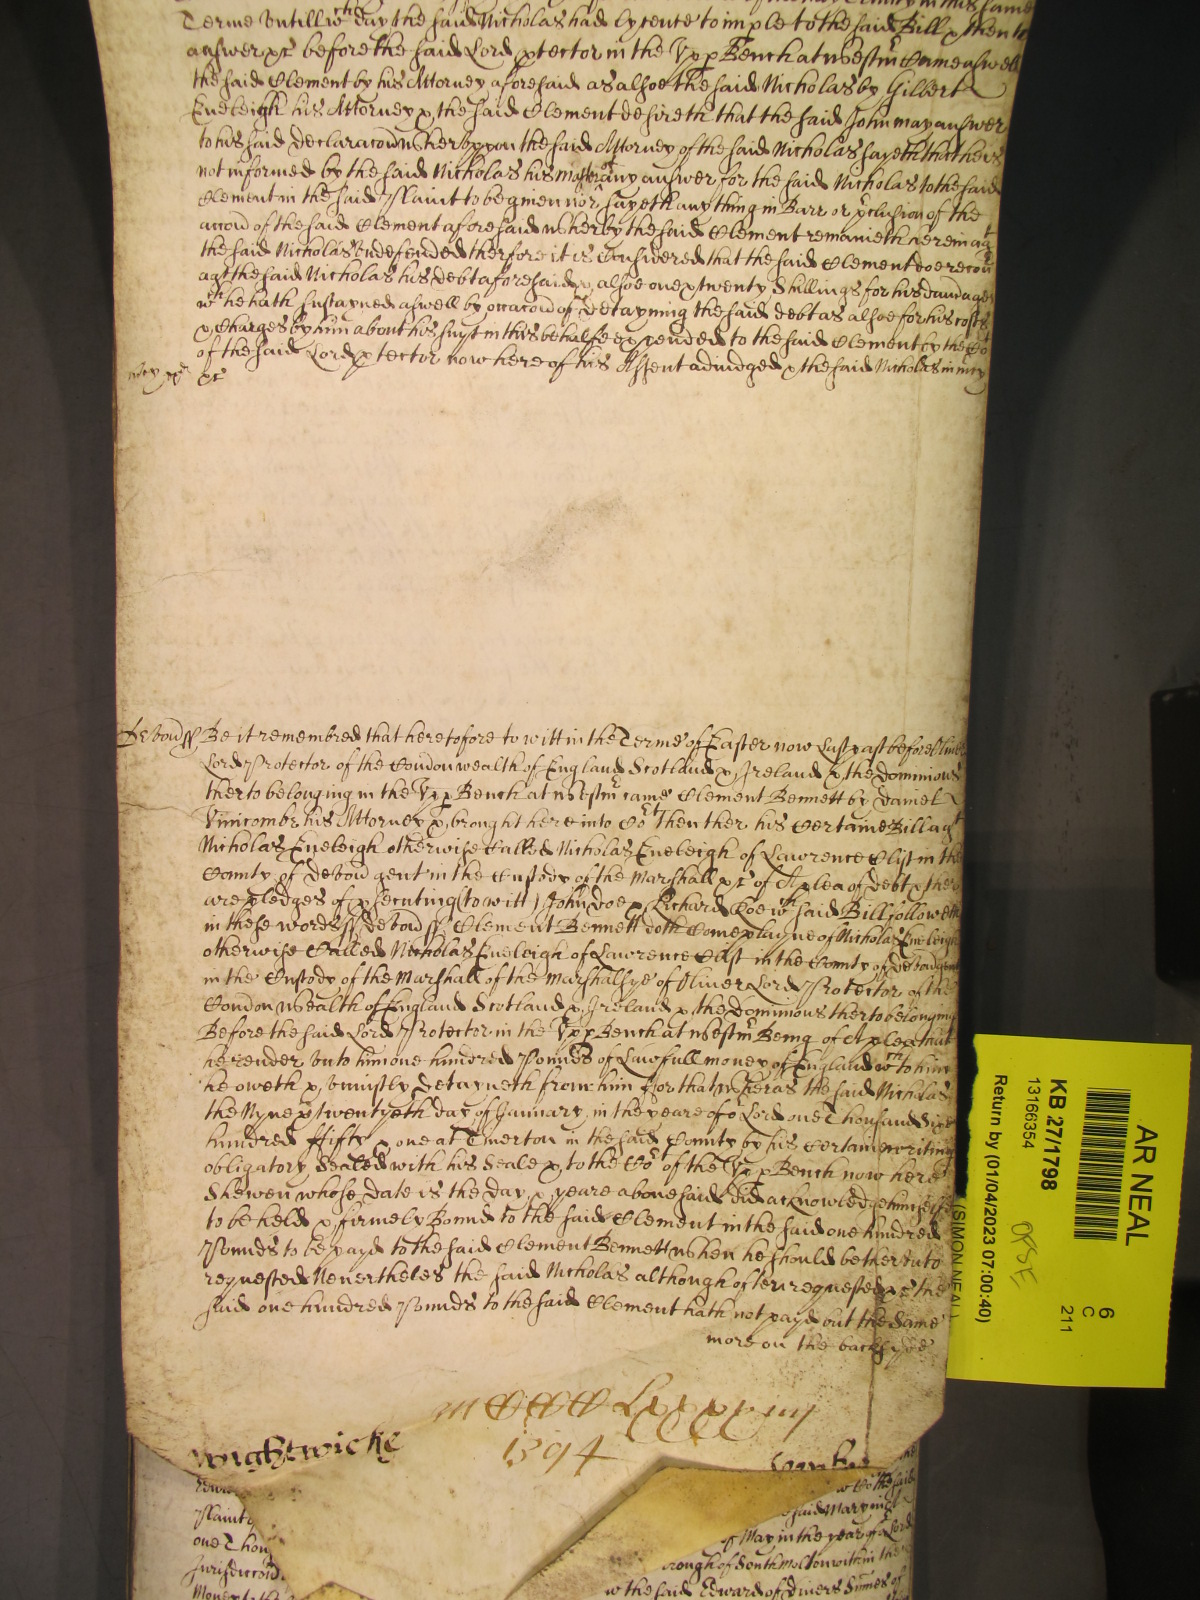 Terme untill wch day the said Nicholas had lycence to imple to the said Bill & then to
answer &c before the said Lord ptector in the Upp Bench at Westmr Came aswell
the said Clement by his Attorney aforesaid as alsoe the said Nicholas by Gilbert
Eveleigh his Attorney & the said Clement desireth that the said John may answer
to his said Declaracon Wherupon the said Attorney of the said Nicholas sayeth that he is
not informed by the said Nicholas his master of any answer for the said Nicholas to the said
Clement in the said Plaint to be given nor sayeth any thing in Barr or pclusion of the
accon of the said Clement aforesaid wherby the said Clement remaineth therein agt
the said Nicholas undefended therfore it is Considered that the said Clement doe recou
agt the said Nicholas his debt aforesaid & alsoe one & twenty Shillings for his damages
wch he hath sustayned aswell by occacon of Detayning the said debt as alsoe for his costs
& Charges by him about his suyt in this behalfe expended to the said Clement by the Cot
of the said Lord ptector now here of his Assent adiudged & the said Nicholas in mcy
&c
Devon ss Be it remembred that heretofore to witt in the Terme of Easter now Last past before Oliver
Lord Protector of the Comonwealth of England Scotland & Ireland & the Dominions
therto belonging in the Upp Bench at Westmr came Clement Bennett by Daniel
Vinicombe his Attorney & brought here into Cot then ther his Certaine Bill agt
Nicholas Eveleigh otherwise Called Nicholas Eveleigh of Lawrence Clist in the
County of Devon gent in the Custody of the Marshall &c of A plea of debt & ther
are pledges of psecuting (to witt) John Doe & Richard Roe wch said Bill followeth
in these words ss Devon ss Clement Bennett doth Complayne of Nicholas Eveleigh
otherwise Called Nicholas Eveleigh of Lawrence Clist in the County of Devon gent
in the Custody of the Marshall of the Marshallsye of Oliver Lord Protector of the
Comon Wealth of England Scotland & Ireland & the Dominions therto belonging
Before the said Lord Protector in the Upp Bench at Westmr Being of A plea that
he render unto him one hundred Pounds of Lawfull money of England wch to him
he oweth & uniustly Detayneth from him For that Wheras the said Nicholas
the Nyne & twentyeth day of January in the yeare of or Lord one Thousand Six
hundred fifty & one at Tiverton in the said County by his Certaine writing
obligatory Sealed with his Seale & to the Cot of the Upp Bench now here
Shewen whose Date is the day & yeare abovesaid did acknowledge himselfe
to be held & firmely Bound to the said Clement in the said one hundred
Pounds to be payd to the said Clement Bennett When he should be therunto
requested Nevertheles the said Nicholas although often requested &c the
said one hundred Pounds to the said Clement hath not payd but the same
more on the backsyde
Wightwicke
1394
Plaint
one Thou
Jurisdiccon
said Mary
of May in the year of or Lord
rough of South Molton within the
w the said Edward of divers Summes of
AR NEAL
KB 27/1798
13166354
Return by (01/04/2023 07:00:40)
(SIMON NEAL)
6
C
211